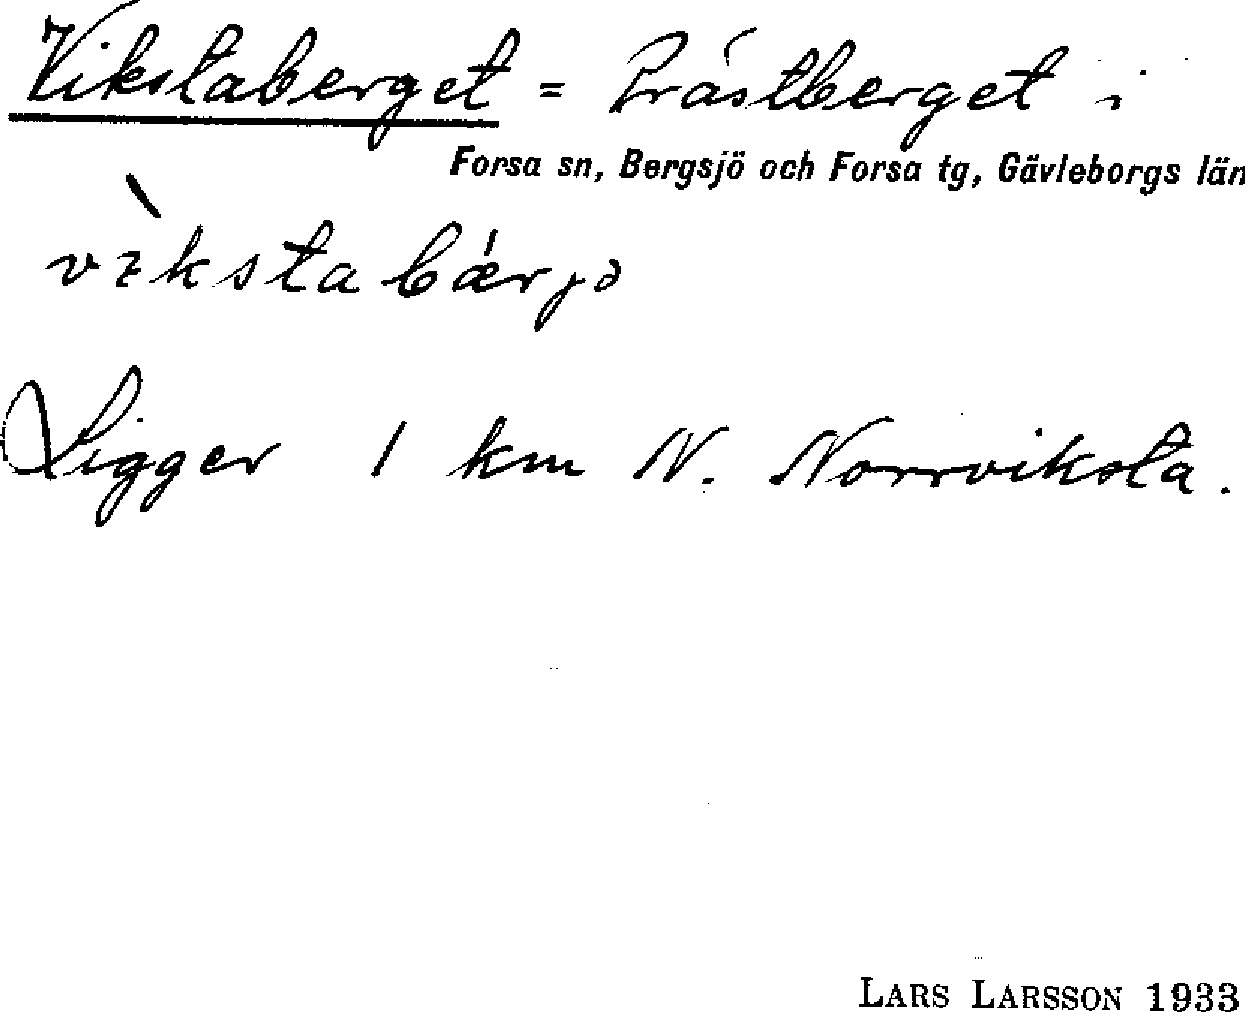 Vikstaberget = Prästberget i
Forsa sn, Bergsjö och Forsa tg, Gävleborgs län
v̀ıkstabǽrjə
Ligger 1 km N. Norrviksta.
LARS LARSSON 1933